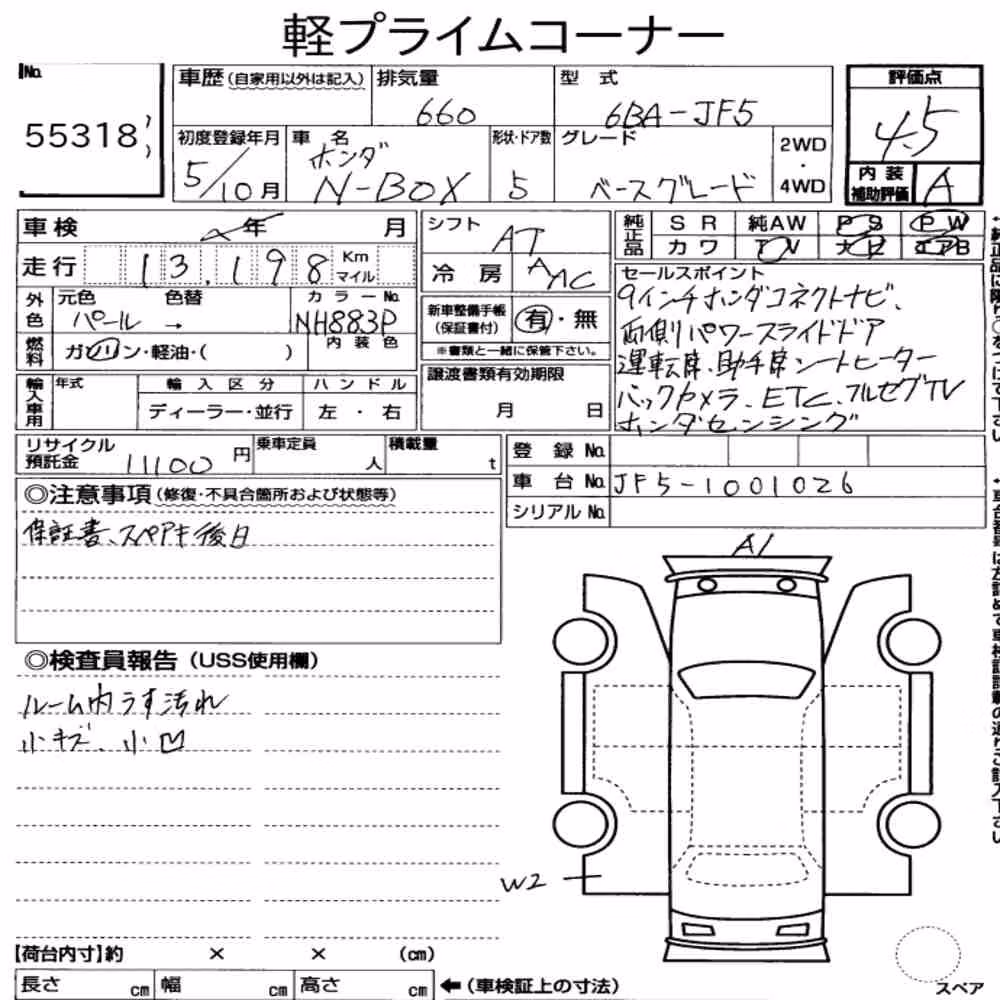 軽プライムコーナー
No. 55318
車歴 (自家用以外は記入)
排気量 660
型式 6BA-JF5
評価点 4.5
内装補助評価 A
初度登録年月 5/10月
車名 ホンダ N-BOX
形状・ドア数 5
グレード ベースグレード
2WD ・ 4WD
車検 年 月
走行 13,198 Km マイル
外色 元色 パール → 色替
カラーNo. NH883P
内装色
燃料 ガソリン・軽油・( )
輸入車用 年式 輸入区分 ディーラー・並行 ハンドル 左・右
シフト AT
冷房 AAC
新車整備手帳(保証書付) 有・無
※書類と一緒に保管下さい。
譲渡書類有効期限 月 日
純正品 SR 純AW PS PW
カワ TV エアB
セールスポイント
9インチホンダコネクトナビ、
両側パワースライドドア
運転席、助手席シートヒーター
バックカメラ、ETC、フルセグTV
ホンダセンシング
リサイクル預託金 11100円
乗車定員 人
積載量 t
登録No.
車台No. JF5-1001026
シリアルNo.
◎注意事項(修復・不具合箇所および状態等)
保証書、スペアキ後日
◎検査員報告(USS使用欄)
ルーム内うす汚れ
小キズ、小凹
A1
W2
【荷台内寸】約 × × (cm)
長さ cm 幅 cm 高さ cm ←(車検証上の寸法)
スペア